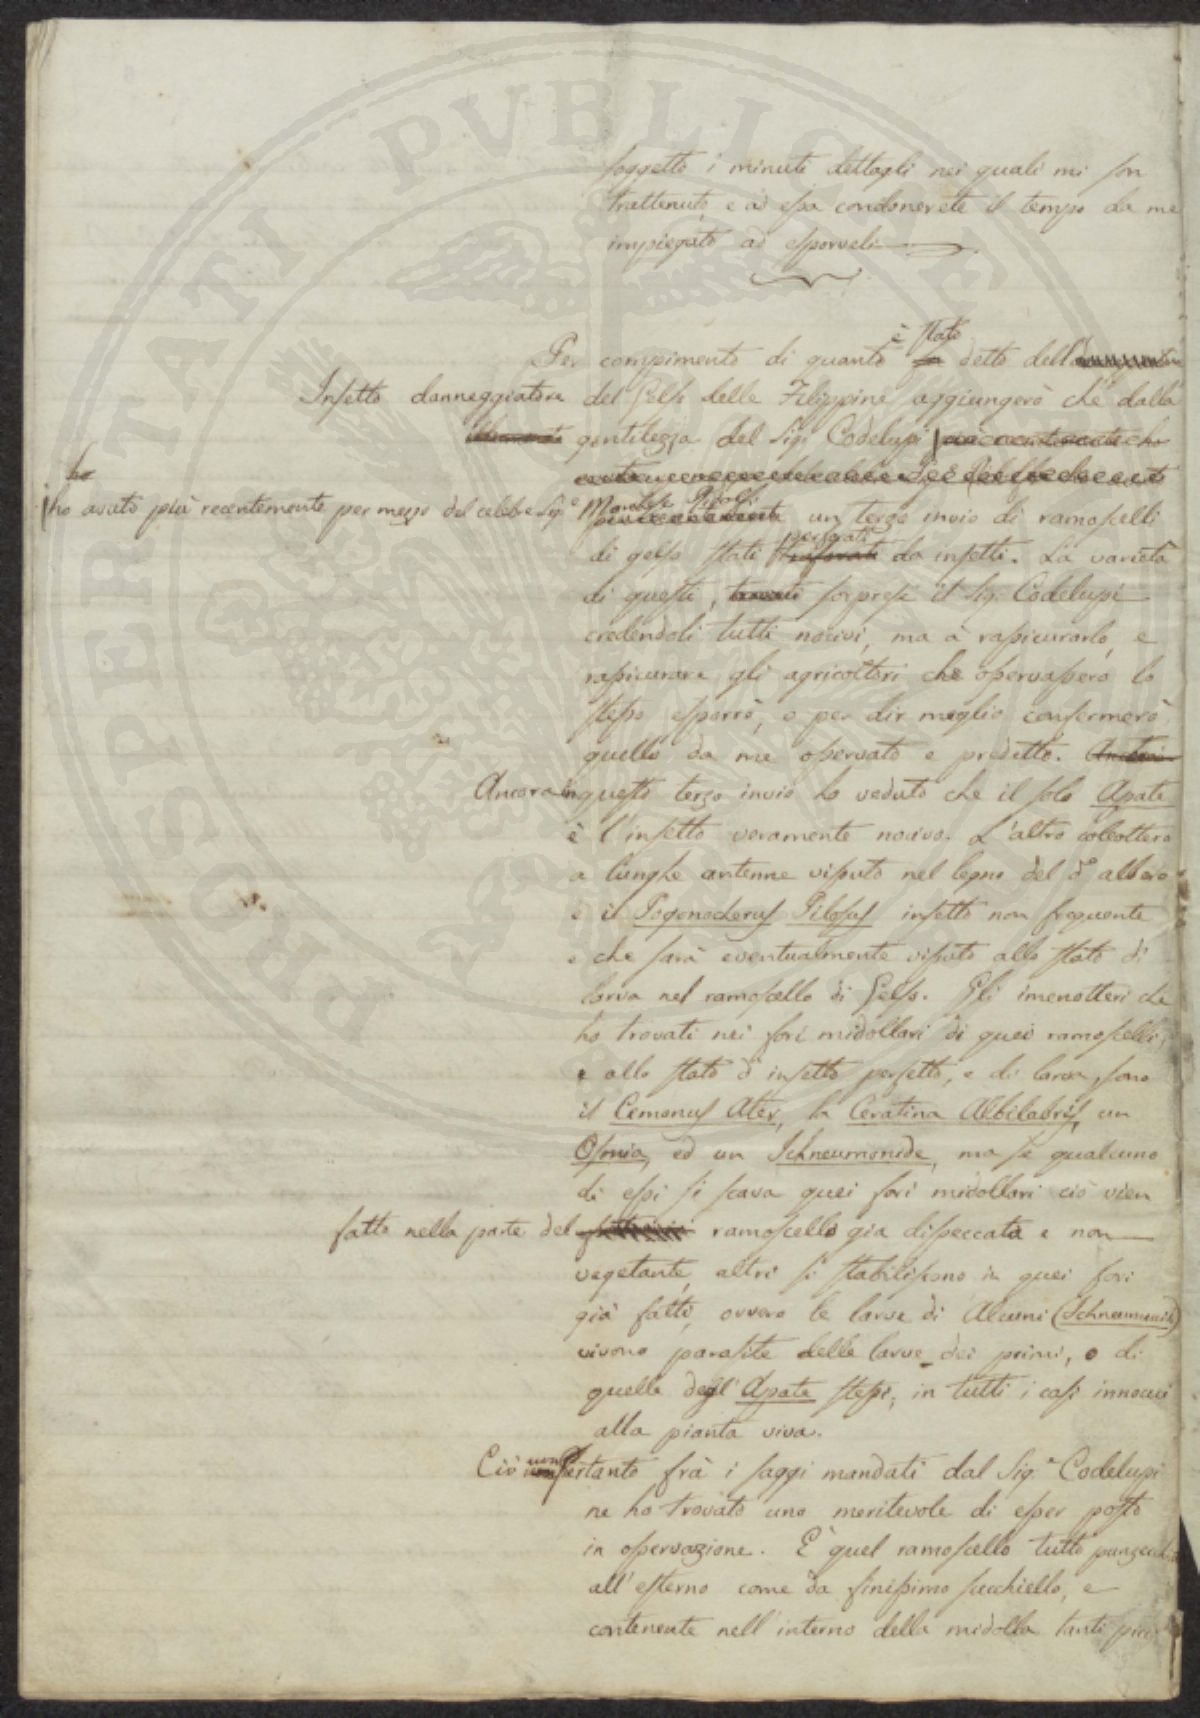 soggetto i minuti dettagli nei quali mi son
trattenuto, e ad essa condonerete il tempo da me
impiegato ad esporveli
è stato
Per compimento di quanto detto dell'
Insetto danneggiatore del Gelso delle Filippine aggiungerò che dalla
gentilezza del Sig. Codelupi
ho
ho avuto più recentemente per mezzo del celebre Sig.e un terzo invio di ramoscelli
perforati
di gelso stati traforati da insetti. La varietà
di questi, sorprese il Sig. Codelupi
credendoli tutti nocivi, ma a rassicurarlo, e
rassicurare gli agricoltori che osservassero lo
stesso esporrò, o per dir meglio confermerò
quello da me osservato e predetto.
Ancora in questo terzo invio ho veduto che il solo Apate
è l'insetto veramente nocivo. L'altro coleottero
a lunghe antenne vissuto nel legno del do albero
è il Pogonocherus Pilosus insetto non frequente
e che sarà eventualmente vissuto allo stato di
larva nel ramoscello di Gelso. Gli imenotteri che
ho trovati nei fori midollari di quei ramoscelli,
e allo stato d'insetto perfetto, e di larva, sono
il Cemonus Ater, la Ceratina Albilabris, un
Osmia, ed un Ichneumonide, ma se qualcuno
di essi si scava quei fori midollari ciò vien
fatto nella parte del ramoscello già disseccata e non
vegetante, altri si stabiliscono in quei fori
già fatti, ovvero le larve di Alcuni (Ichneumonidi)
vivono parasite delle larve dei primi, o di
quelle degl'Apate stessi, in tutti i casi innocui
alla pianta viva.
Ciò non pertanto frà i saggi mandati dal Sig.e Codelupi
ne ho trovato uno meritevole di esser posto
in osservazione. È quel ramoscello tutto
all'esterno come da finissimo succhiello, e
contenente nell'interno della midolla tanti